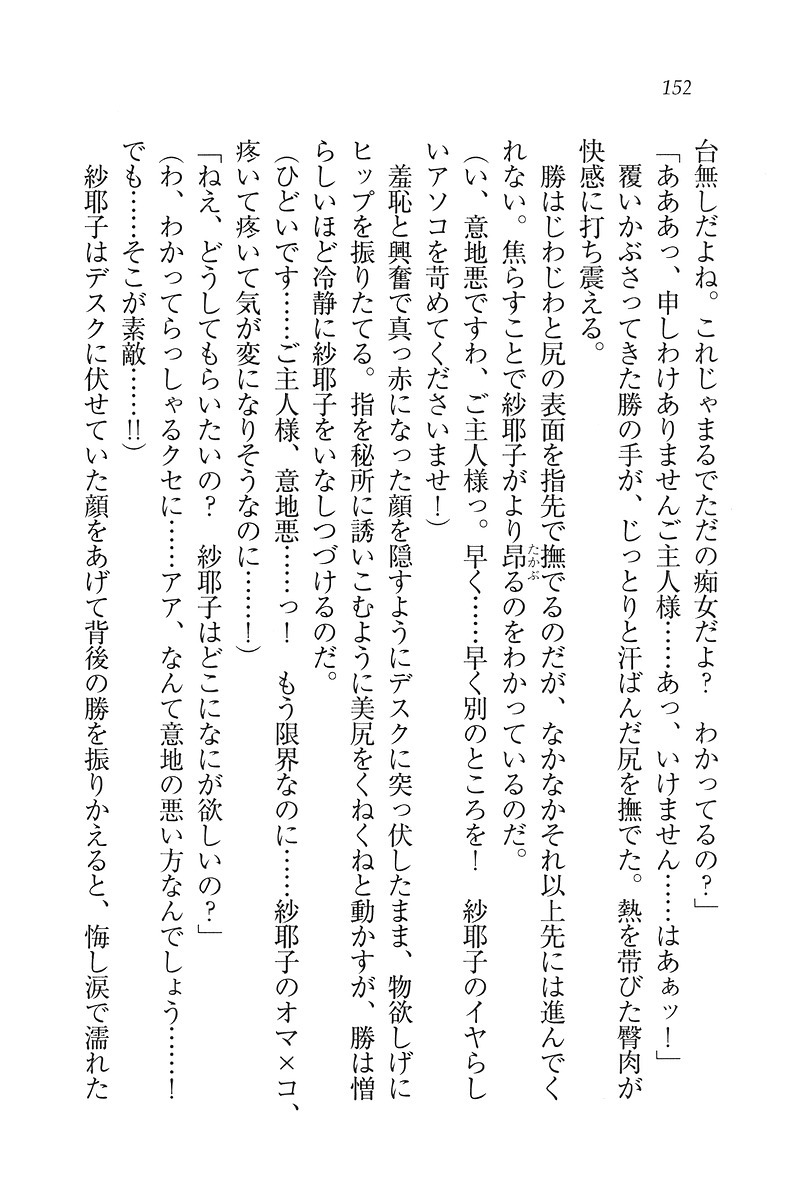 152
台無しだよね。これじゃまるでただの痴女だよ？　わかってるの？」
「あああっ、申しわけありませんご主人様……あっ、いけません……はあぁッ！」
覆いかぶさってきた勝の手が、じっとりと汗ばんだ尻を撫でた。熱を帯びた臀肉が
快感に打ち震える。
勝はじわじわと尻の表面を指先で撫でるのだが、なかなかそれ以上先には進んでく
れない。焦らすことで紗耶子がより昂るのをわかっているのだ。
たかぶ
（い、意地悪ですわ、ご主人様っ。早く……早く別のところを！　紗耶子のイヤらし
いアソコを苛めてくださいませ！）
羞恥と興奮で真っ赤になった顔を隠すようにデスクに突っ伏したまま、物欲しげに
ヒップを振りたてる。指を秘所に誘いこむように美尻をくねくねと動かすが、勝は憎
らしいほど冷静に紗耶子をいなしつづけるのだ。
（ひどいです……ご主人様、意地悪……っ！　もう限界なのに……紗耶子のオマ×コ、
疼いて疼いて気が変になりそうなのに……！）
「ねえ、どうしてもらいたいの？　紗耶子はどこになにが欲しいの？」
（わ、わかってらっしゃるクセに……アア、なんて意地の悪い方なんでしょう……！
でも……そこが素敵……!!）
紗耶子はデスクに伏せていた顔をあげて背後の勝を振りかえると、悔し涙で濡れた